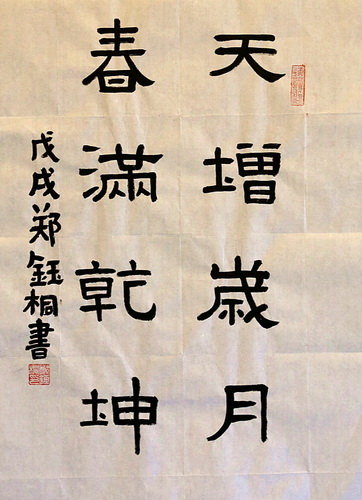 天增歳月
春滿乾坤
戊戌郑鈺桐書